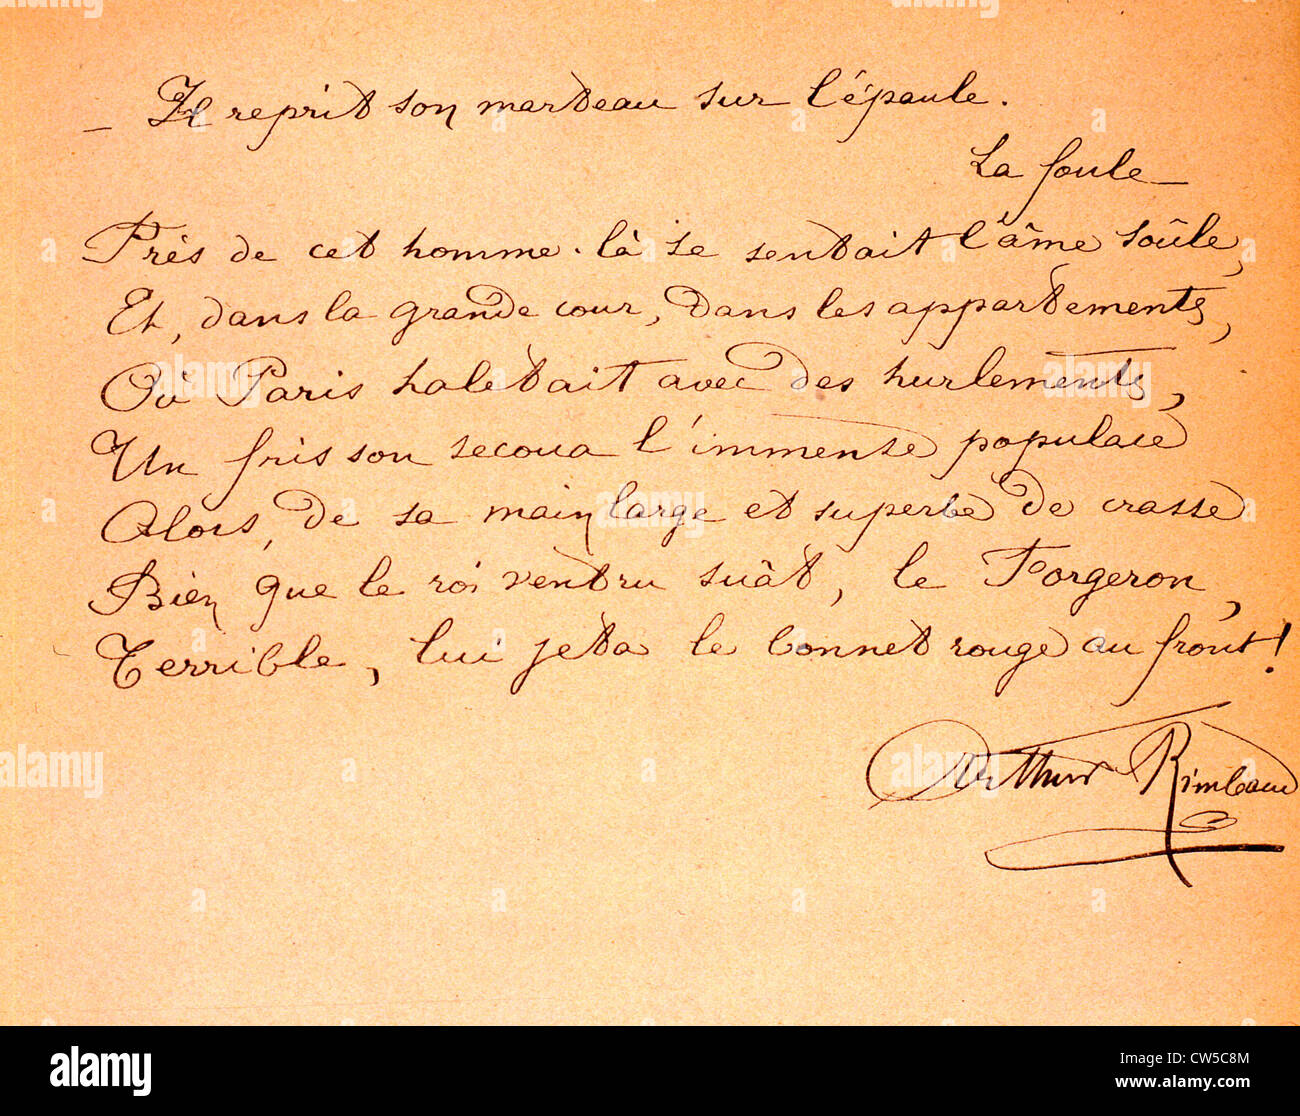 — Il reprit son marteau sur l'épaule.
La foule —
Près de cet homme-là se sentait l'âme soûle,
Et, dans la grande cour, dans les appartements,
Où Paris haletait avec des hurlements,
Un frisson secoua l'immense populace
Alors, de sa main large et superbe de crasse
Bien que le roi ventru suât, le Forgeron,
Terrible, lui jeta le bonnet rouge au front!
Arthur Rimbaud
alamy
Image ID: CW5C8M
www.alamy.com